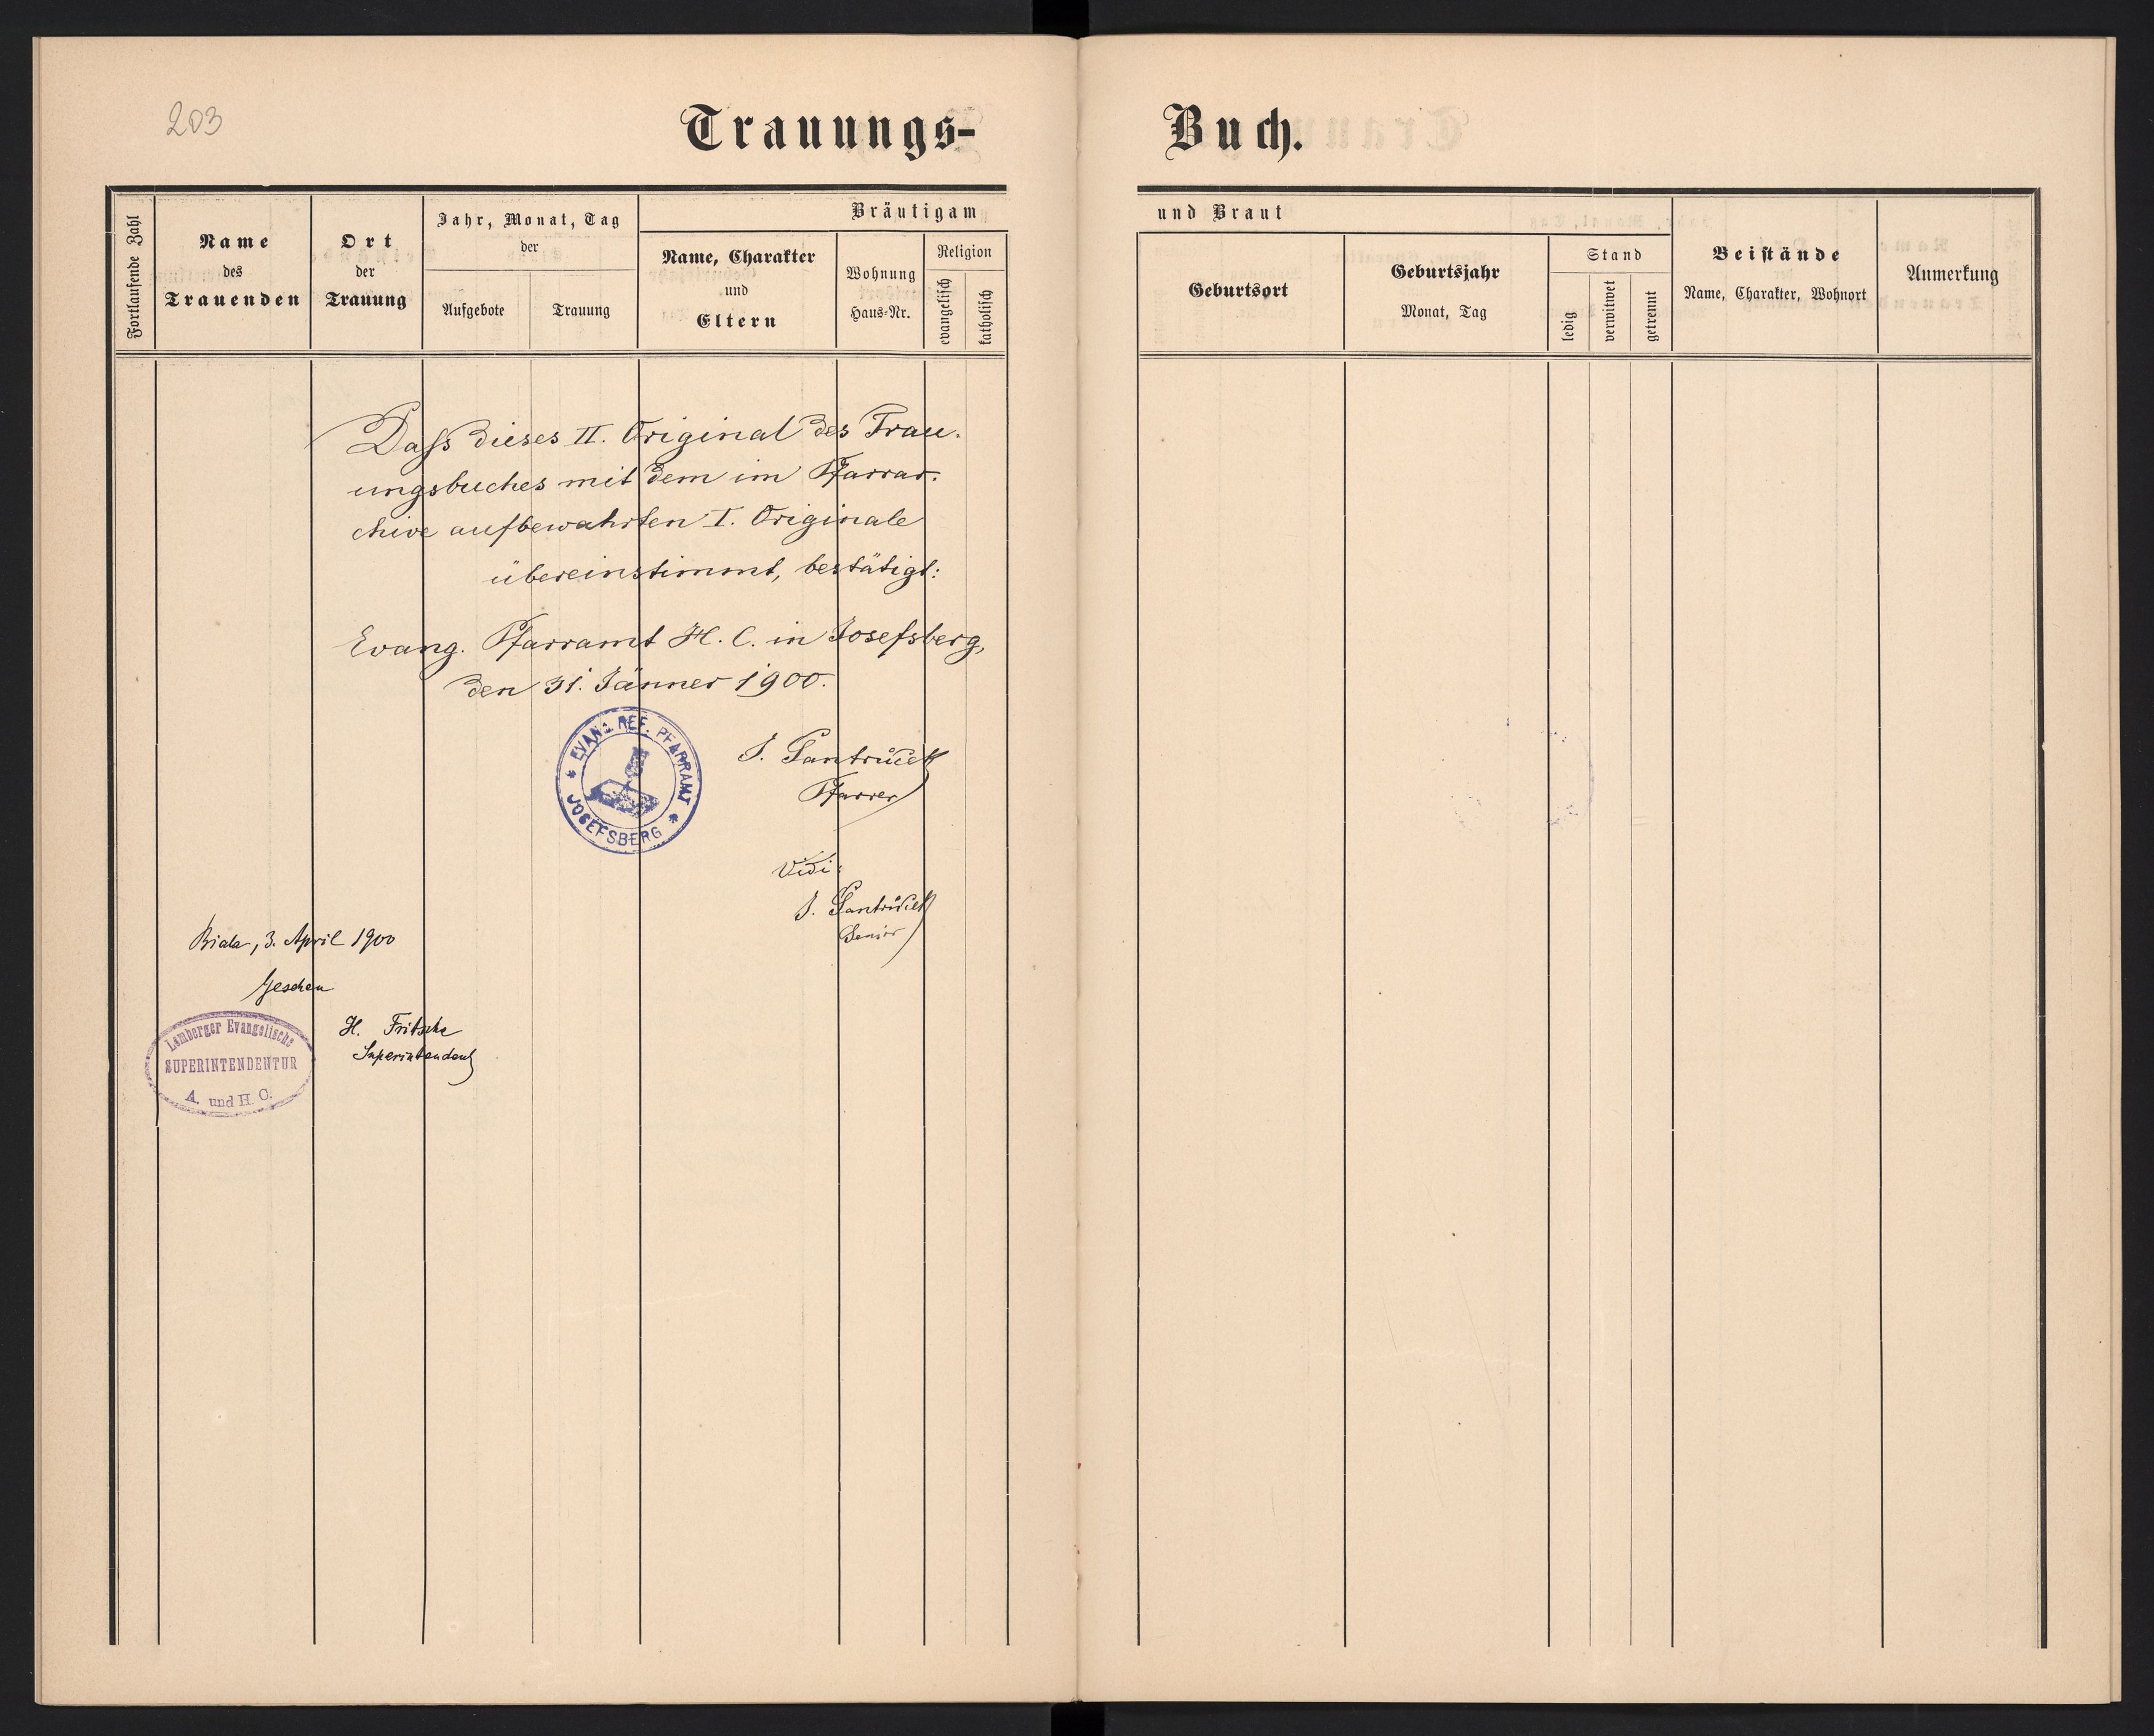 203
Trauungs-
Buch.
Fortlaufende Zahl
Name
des
Trauenden
Ort
der
Trauung
Jahr, Monat, Tag
der
Aufgebote
Trauung
Bräutigam
Name, Charakter
und
Eltern
Wohnung
Haus-Nr.
Religion
evangelisch
katholisch
und Braut
Geburtsort
Geburtsjahr
Monat, Tag
Stand
ledig
verwitwet
getrennt
Beistände
Name, Charakter, Wohnort
Anmerkung
Dass dieses II. Original des Trau-
ungsbuches mit dem im Pfarrar-
chive aufbewahrten I. Originale
übereinstimmt, bestätigt:
Evang. Pfarramt H. C. in Josefsberg,
den 31. Jänner 1900.
* EVANG. REF. PFARRAMT *
JOSEFSBERG
J.
Pfarrer
Vidi:
J.
Senior
Biala, 3. April 1900
Gesehen
Lemberger Evangelische
SUPERINTENDENTUR
A. und H. C.
H. Fritsche
Superintendent